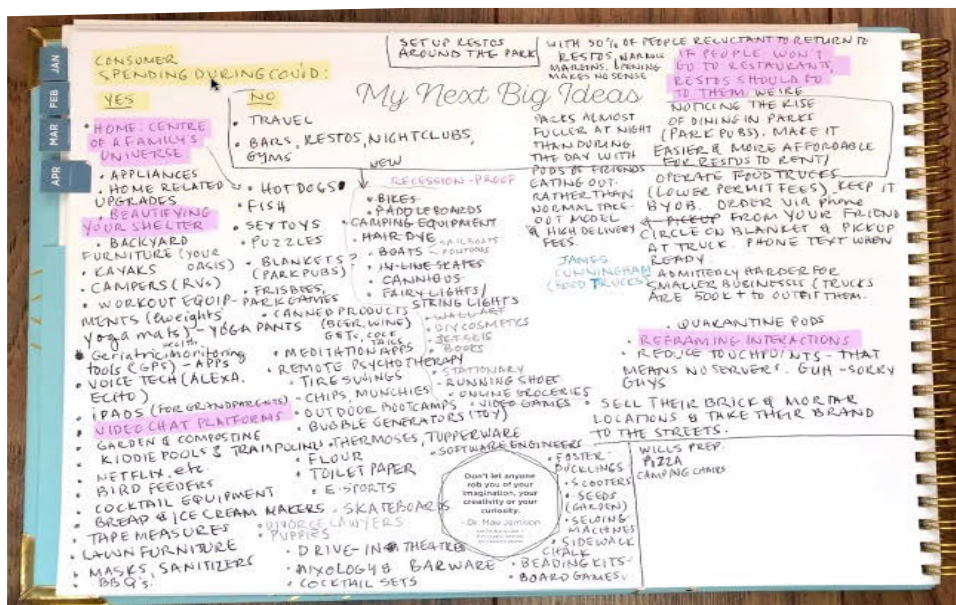 JAN
FEB
MAR
APR
CONSUMER
SPENDING DURING COVID:
YES
NO
• TRAVEL
• BARS, RESTOS, NIGHTCLUBS,
GYMS
SET UP RESTOS
AROUND THE PARK
My Next Big Ideas
• HOME: CENTRE
OF A FAMILY'S
UNIVERSE
• APPLIANCES
• HOME RELATED
UPGRADES
• BEAUTIFYING
YOUR SHELTER
• BACKYARD
FURNITURE (YOUR
OASIS)
• KAYAKS
• CAMPERS (RVs)
• WORKOUT EQUIP-
MENTS (& weights
yoga mats) - YOGA PANTS
• Geriatric health monitoring
tools (GPS) - APPS
• VOICE TECH (ALEXA,
ECHO)
• iPADS (FOR GRANDPARENTS)
• VIDEO CHAT PLATFORMS
• GARDEN & COMPOSTING
• KIDDIE POOLS & TRAMPOLINES
• NETFLIX, etc.
• BIRD FEEDERS
• COCKTAIL EQUIPMENT
• BREAD & ICE CREAM MAKERS
• TAPE MEASURES
• LAWN FURNITURE
• MASKS, SANITIZERS
• BBQ's.
• HOT DOGS
• FISH
• SEX TOYS
• PUZZLES
• BLANKETS?
(PARK PUBS)
• FRISBIES,
PARK GAMES
• CANNED PRODUCTS
(BEER, WINE)
COCKTAILS
• MEDITATION APPS
• REMOTE PSYCHOTHERAPY
• TIRE SWINGS
• CHIPS, MUNCHIES
• OUTDOOR BOOTCAMPS
• BUBBLE GENERATORS (TOY)
• THERMOSES, TUPPERWARE
• FLOUR
• TOILET PAPER
• E-SPORTS
• SKATEBOARDS
• DIVORCE LAWYERS
• PUPPIES
• DRIVE-IN THEATRES
• MIXOLOGY & BARWARE
• COCKTAIL SETS
NEW
RECESSION-PROOF
• BIKES
• PADDLEBOARDS
• CAMPING EQUIPMENT
• HAIR DYE
• BOATS - SAILBOATS
- PONTOONS
• IN-LINE SKATES
• CANNIBUS
• FAIRY LIGHTS/
STRING LIGHTS
• WALL ART
• DIY COSMETICS
• JET SKIS
• BOOKS
• STATIONARY
• RUNNING SHOES
• ONLINE GROCERIES
• VIDEO GAMES
• SOFTWARE ENGINEERS
Don't let anyone
rob you of your
imagination, your
creativity or your
curiosity.
- Dr. Mae Jemison
• FOSTER
DUCKLINGS
• SCOOTERS
• SEEDS
(GARDEN)
• SEWING
MACHINES
• SIDEWALK
CHALK
• BEADING KITS
• BOARD GAMES
WITH 50% OF PEOPLE RELUCTANT TO RETURN TO
RESTOS, NARROW
MARGINS, OPENING
MAKES NO SENSE
PARKS ALMOST
FULLER AT NIGHT
THAN DURING
THE DAY WITH
PODS OF FRIENDS
EATING OUT.
RATHER THAN
NORMAL TAKE-
OUT MODEL
& HIGH DELIVERY
FEES.
JAMES
CUNNINGHAM
(FOOD TRUCKS)
IF PEOPLE WON'T
GO TO RESTAURANTS,
RESTOS SHOULD GO
TO THEM. WE'RE
NOTICING THE RISE
OF DINING IN PARKS
(PARK PUBS). MAKE IT
EASIER & MORE AFFORDABLE
FOR RESTOS TO RENT/
OPERATE FOOD TRUCKS
(LOWER PERMIT FEES). KEEP IT
BYOB. ORDER VIA phone
& PICKUP FROM YOUR FRIEND
CIRCLE ON BLANKET & PICKUP
AT TRUCK. PHONE TEXT WHEN
READY
ADMITTEDLY HARDER FOR
SMALLER BUSINESSES (TRUCKS
ARE 500K + TO OUTFIT THEM.
• QUARANTINE PODS
• REFRAMING INTERACTIONS
• REDUCE TOUCHPOINTS - THAT
MEANS NO SERVERS. GUH - SORRY
GUYS
• SELL THEIR BRICK & MORTAR
LOCATIONS & TAKE THEIR BRAND
TO THE STREETS.
WILLS PREP.
PIZZA
CAMPING CHAIRS